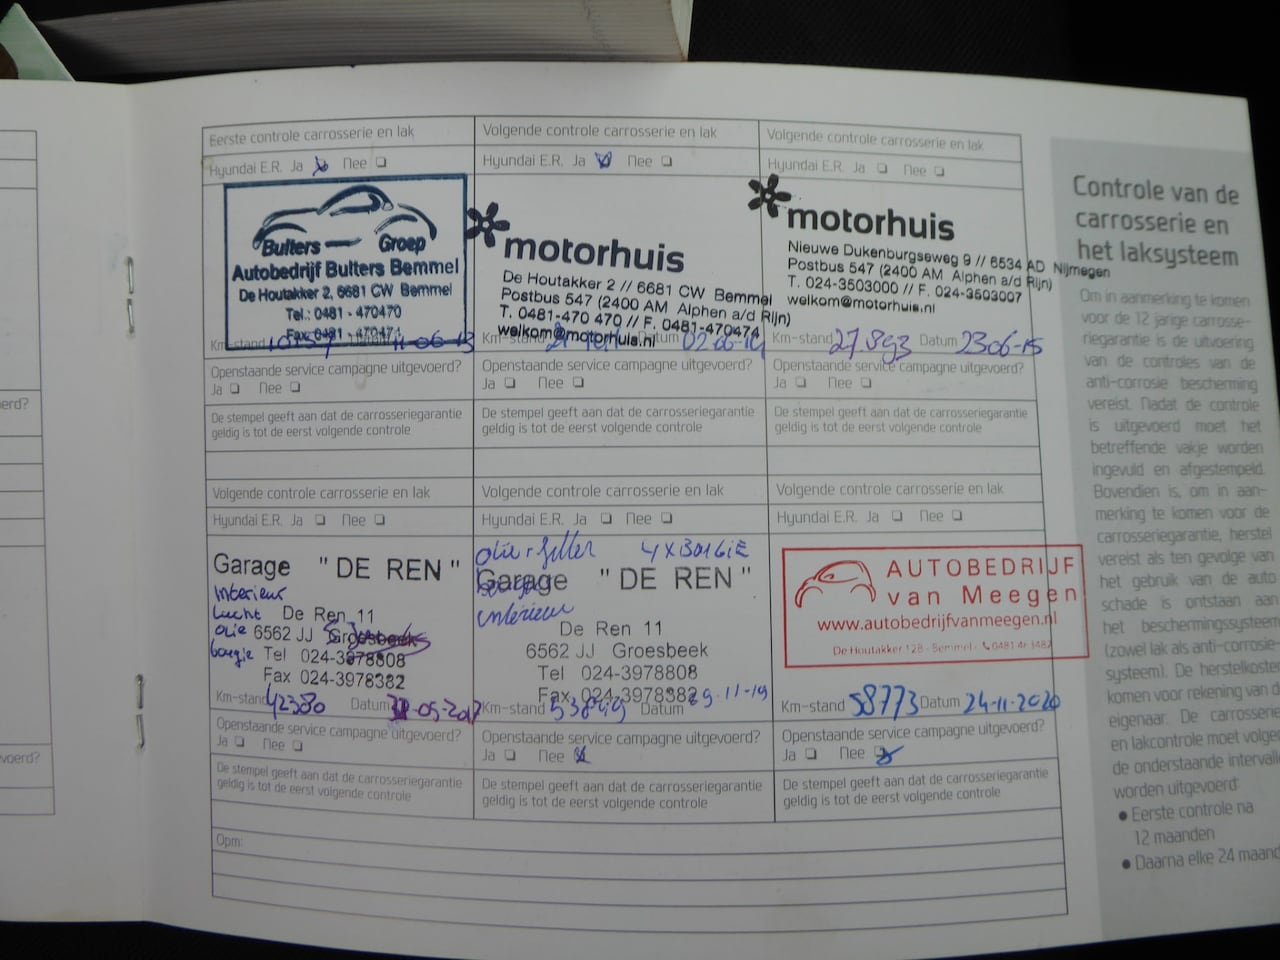 Eerste controle carrosserie en lak
Hyundai E.R. Ja Nee
Bulters Groep
Autobedrijf Bulters Bemmel
De Houtakker 2, 6681 CW Bemmel
Tel.: 0481 - 470470
Fax 0481 - 470471
Km-stand 11-06-13
Openstaande service campagne uitgevoerd?
Ja Nee
De stempel geeft aan dat de carrosseriegarantie
geldig is tot de eerst volgende controle
Volgende controle carrosserie en lak
Hyundai E.R. Ja Nee
motorhuis
De Houtakker 2 // 6681 CW Bemmel
Postbus 547 (2400 AM Alphen a/d Rijn)
T. 0481-470 470 // F. 0481-470474
welkom@motorhuis.nl
Km-stand Datum
Openstaande service campagne uitgevoerd?
Ja Nee
De stempel geeft aan dat de carrosseriegarantie
geldig is tot de eerst volgende controle
Volgende controle carrosserie en lak
Hyundai E.R. Ja Nee
motorhuis
Nieuwe Dukenburgseweg 9 // 6534 AD Nijmegen
Postbus 547 (2400 AM Alphen a/d Rijn)
T. 024-3503000 // F. 024-3503007
welkom@motorhuis.nl
Km-stand 27.893 Datum 2306-15
Openstaande service campagne uitgevoerd?
Ja Nee
De stempel geeft aan dat de carrosseriegarantie
geldig is tot de eerst volgende controle
Volgende controle carrosserie en lak
Hyundai E.R. Ja Nee
Garage "DE REN"
interieur
lucht De Ren 11
olie 6562 JJ Groesbeek
bougie Tel 024-3978808
Fax 024-3978382
Km-stand 42380 Datum -05-2017
Openstaande service campagne uitgevoerd?
Ja Nee
De stempel geeft aan dat de carrosseriegarantie
geldig is tot de eerst volgende controle
Volgende controle carrosserie en lak
Hyundai E.R. Ja Nee
olie + filter 4 x BOUGIE
Garage "DE REN"
interieur
De Ren 11
6562 JJ Groesbeek
Tel 024-3978808
Fax 024-3978382
Km-stand Datum 29-11-19
Openstaande service campagne uitgevoerd?
Ja Nee
De stempel geeft aan dat de carrosseriegarantie
geldig is tot de eerst volgende controle
Volgende controle carrosserie en lak
Hyundai E.R. Ja Nee
AUTOBEDRIJF
van Meegen
www.autobedrijfvanmeegen.nl
De Houtakker 12B - Bemmel -
Km-stand 58773 Datum 24-11-2020
Openstaande service campagne uitgevoerd?
Ja Nee
De stempel geeft aan dat de carrosseriegarantie
geldig is tot de eerst volgende controle
Opm:
Controle van de
carrosserie en
het laksysteem
Om in aanmerking te komen
voor de 12 jarige carrosse-
riegarantie is de uitvoering
van de controles van de
anti-corrosie bescherming
vereist. Nadat de controle
is uitgevoerd moet het
betreffende vakje worden
ingevuld en afgestempeld.
Bovendien is, om in aan-
merking te komen voor de
carrosseriegarantie, herstel
vereist als ten gevolge van
het gebruik van de auto
schade is ontstaan aan
het beschermingssysteem
(zowel lak als anti-corrosie-
systeem). De herstelkosten
komen voor rekening van de
eigenaar. De carrosserie
en lakcontrole moet volgen
de onderstaande intervall
worden uitgevoerd:
• Eerste controle na
12 maanden
• Daarna elke 24 maand
erd?
voerd?